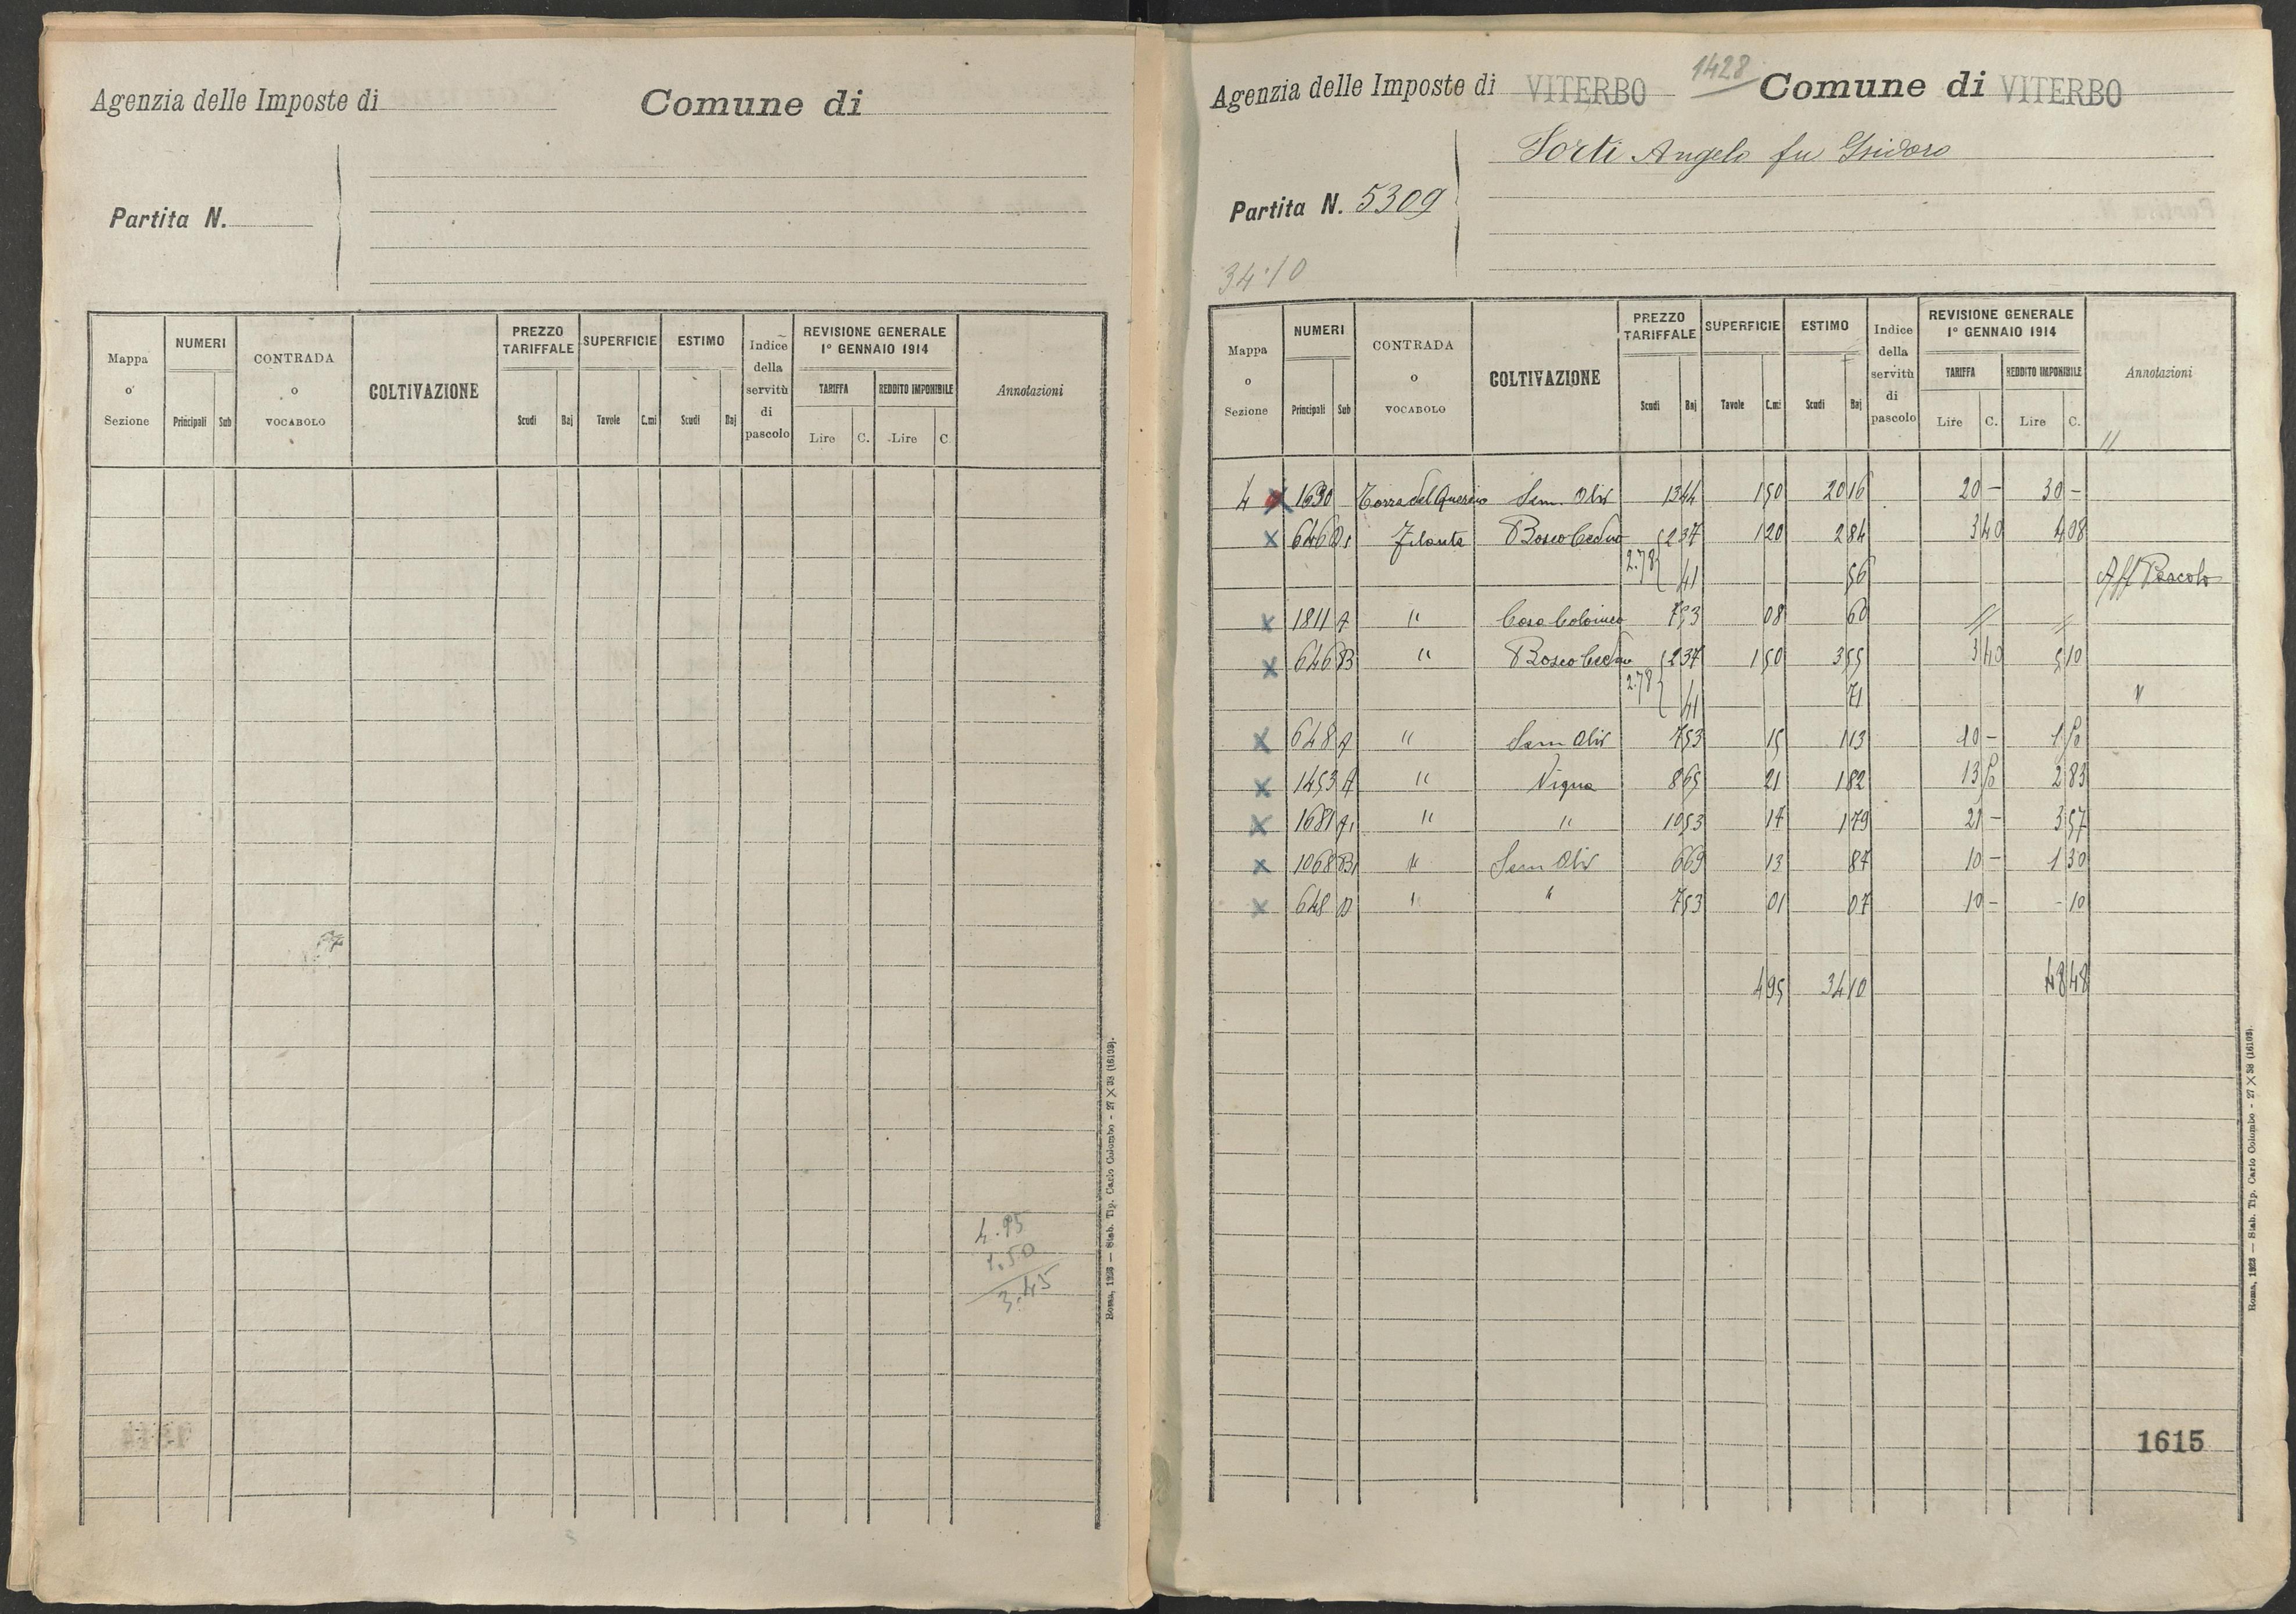 Agenzia delle Imposte di Comune di
Partita N.
Mappa o Sezione NUMERI Principali Sub CONTRADA o VOCABOLO COLTIVAZIONE PREZZO TARIFFALE Scudi Baj SUPERFICIE Tavole C.mi ESTIMO Scudi Baj Indice della servitù di pascolo REVISIONE GENERALE 1º GENNAIO 1914 TARIFFA Lire C. REDDITO IMPONIBILE Lire C. Annotazioni
4.95
1.50
3.45
Roma, 1928 — Stab. Tip. Carlo Colombo - 27 X 38 (16103).
1428
Agenzia delle Imposte di VITERBO Comune di VITERBO
Sorti Angelo fu Isidoro
Partita N. 5309
34.10
Mappa o Sezione NUMERI Principali Sub CONTRADA o VOCABOLO COLTIVAZIONE PREZZO TARIFFALE Scudi Baj SUPERFICIE Tavole C.mi ESTIMO Scudi Baj Indice della servitù di pascolo REVISIONE GENERALE 1º GENNAIO 1914 TARIFFA Lire C. REDDITO IMPONIBILE Lire C. Annotazioni
"
4 X 1630 Sem. Oliv 13 44 1 50 20 16 20 - 30 -
X 646 Bosco Ceduo 2 37 1 20 2 84 3 40 4 08
2.78 41 56 Aff Pascolo
X 1811 A " Casa Colonica 7 53 08 60 " "
X 646 B " Bosco Ceduo 2 37 1 50 3 55 3 40 5 10
2.78 41 71 "
X 648 A " Sem Oliv 7 53 15 1 13 10 - 1 50
X 1453 A " Vigna 8 65 21 1 82 13 50 2 83
X 1681 A1 " " 10 53 17 1 79 21 - 3 57
X 1068 B1 " Sem Oliv 6 69 13 87 10 - 1 30
X 648 D " " 7 53 01 07 10 - - 10
4 95 34 10 48 48
1615
Roma, 1928 — Stab. Tip. Carlo Colombo - 27 X 38 (16103).